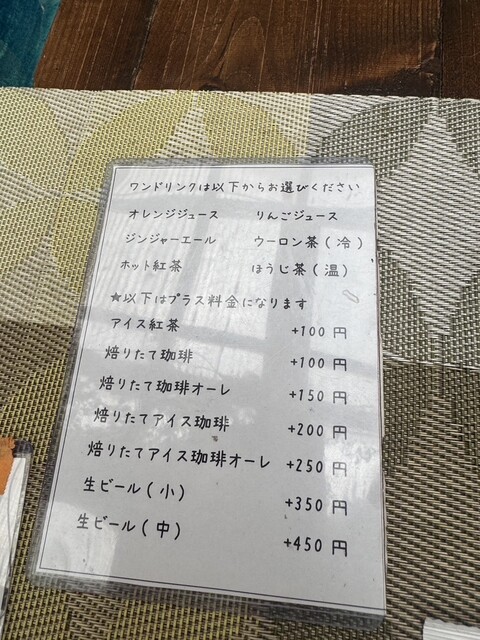 ワンドリンクは以下からお選びください
オレンジジュース りんごジュース
ジンジャーエール ウーロン茶(冷)
ホット紅茶 ほうじ茶(温)
★以下はプラス料金になります
アイス紅茶 +100円
焙りたて珈琲 +100円
焙りたて珈琲オーレ +150円
焙りたてアイス珈琲 +200円
焙りたてアイス珈琲オーレ +250円
生ビール(小) +350円
生ビール(中) +450円